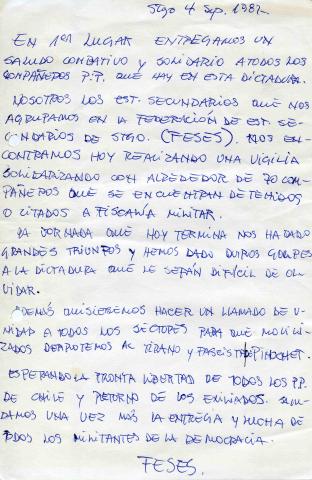 Stgo 4 Sep. 1987.-
EN 1er LUGAR ENTREGAMOS UN
SALUDO COMBATIVO Y SOLIDARIO A TODOS LOS
COMPAÑEROS P.P. QUE HAY EN ESTA DICTADURA.
NOSOTROS LOS EST. SECUNDARIOS QUE NOS
AGRUPAMOS EN LA FEDERACIÓN DE EST. SE-
CUNDARIOS DE STGO. (FESES). NOS EN-
CONTRAMOS HOY REALIZANDO UNA VIGILIA
SOLIDARIZANDO CON ALREDEDOR DE 70 COM-
PAÑEROS QUE SE ENCUENTRAN DETENIDOS
O CITADOS A FISCALÍA MILITAR.
LA JORNADA QUE HOY TERMINA NOS HA DADO
GRANDES TRIUNFOS Y HEMOS DADO DUROS GOLPES
A LA DICTADURA QUE LE SERÁN DIFÍCIL DE OL-
VIDAR.
ADEMÁS QUISIEREMOS HACER UN LLAMADO DE U-
NIDAD A TODOS LOS SECTORES PARA QUE MOVILI-
ZADOS DERROTEMOS AL TIRANO Y FASCISTA PINOCHET.
ESPERANDO LA PRONTA LIBERTAD DE TODOS LOS P.P.
DE CHILE Y RETORNO DE LOS EXILIADOS. SALU-
DAMOS UNA VEZ MÁS LA ENTREGA Y LUCHA DE
TODOS LOS MILITANTES DE LA DEMOCRACIA.
FESES.